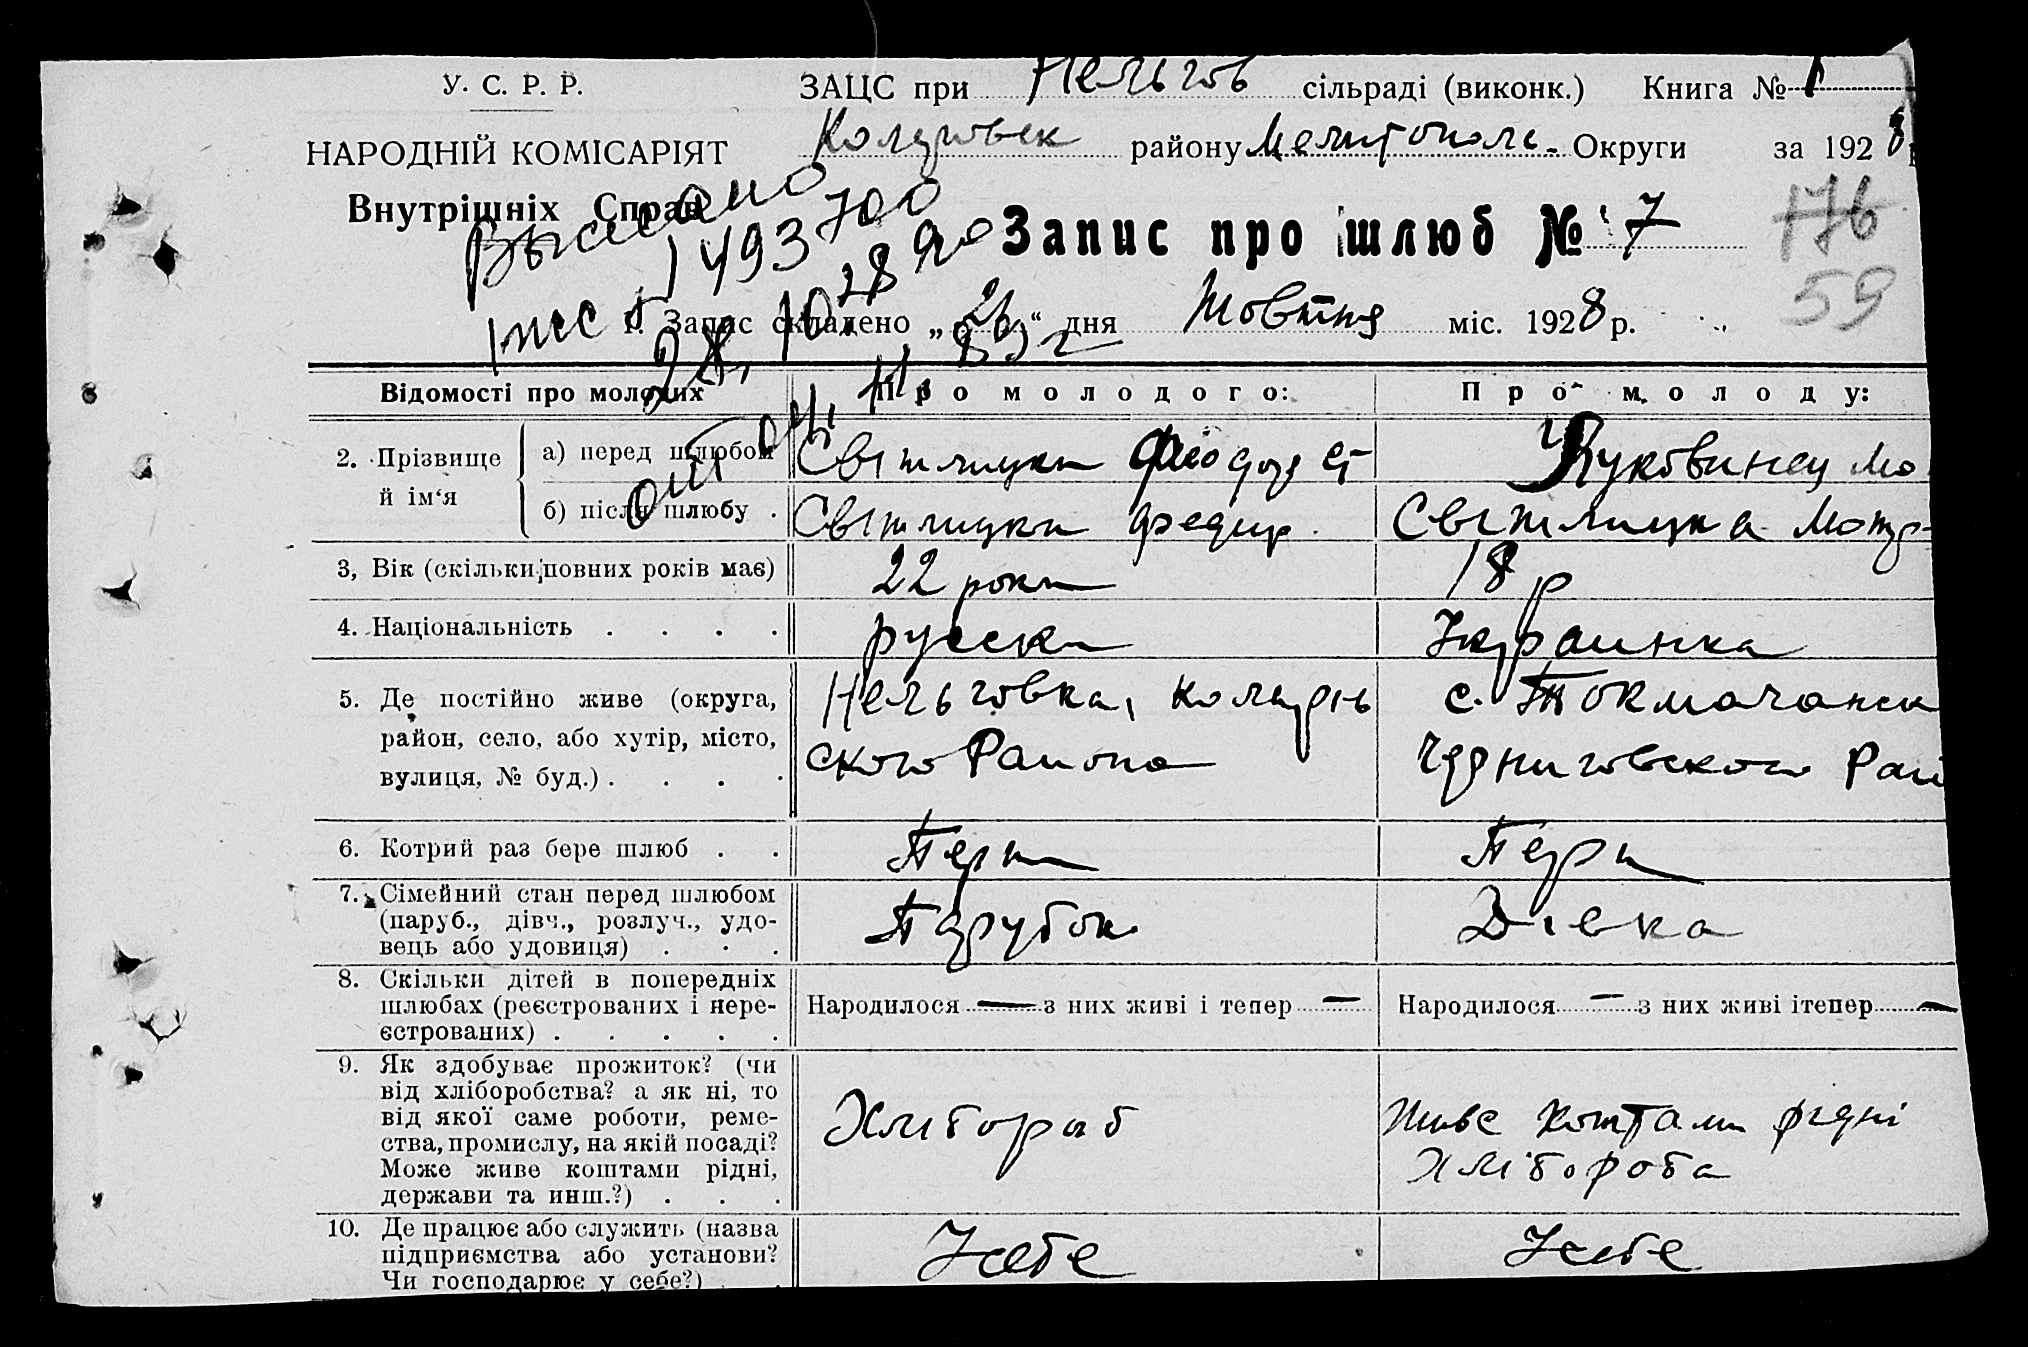 У. С. Р. Р.
ЗАЦС при Нельгов сільраді (виконк.) Книга № 1
НАРОДНІЙ КОМІСАРІЯТ
району Мелитополь. Округи за 1928
Внутрішніх Справ
Выслано
493700
Запис про шлюб № 7
176
59
1. Запис складено „26“ дня Жовтня міс. 1928 р.
Відомості про молодих
Про молодого:
Про молоду:
2. Прізвище й ім‘я
а) перед шлюбом
Світлицки Феодосі
Буковинец Мо
б) після шлюбу
Світлицки Федир
Світлицка Мотр
3. Вік (скільки повних років має)
22 роки
18 р
4. Національність
русски
Украинка
5. Де постійно живе (округа,
район, село, або хутір, місто,
вулиця, № буд.)
Нельговка,
ского Району
с. Токмачанск
Черниговского Рай
6. Котрий раз бере шлюб
Перш
Перш
7. Сімейний стан перед шлюбом
(паруб., дівч., розлуч., удо-
вець або удовиця)
Парубок
Дівка
8. Скільки дітей в попередніх
шлюбах (реєстрованих і нере-
єстрованих)
Народилося — з них живі і тепер —
Народилося — з них живі і тепер —
9. Як здобуває прожиток? (чи
від хліборобства? а як ні, то
від якої саме роботи, реме-
ства, промислу, на якій посаді?
Може живе коштами рідні,
держави та инш.?)
Хлибороб
Живе коштами рідні
Хлібороба
10. Де працює або служить (назва
підприємства або установи?
Чи господарює у себе?)
Усебе
Усебе